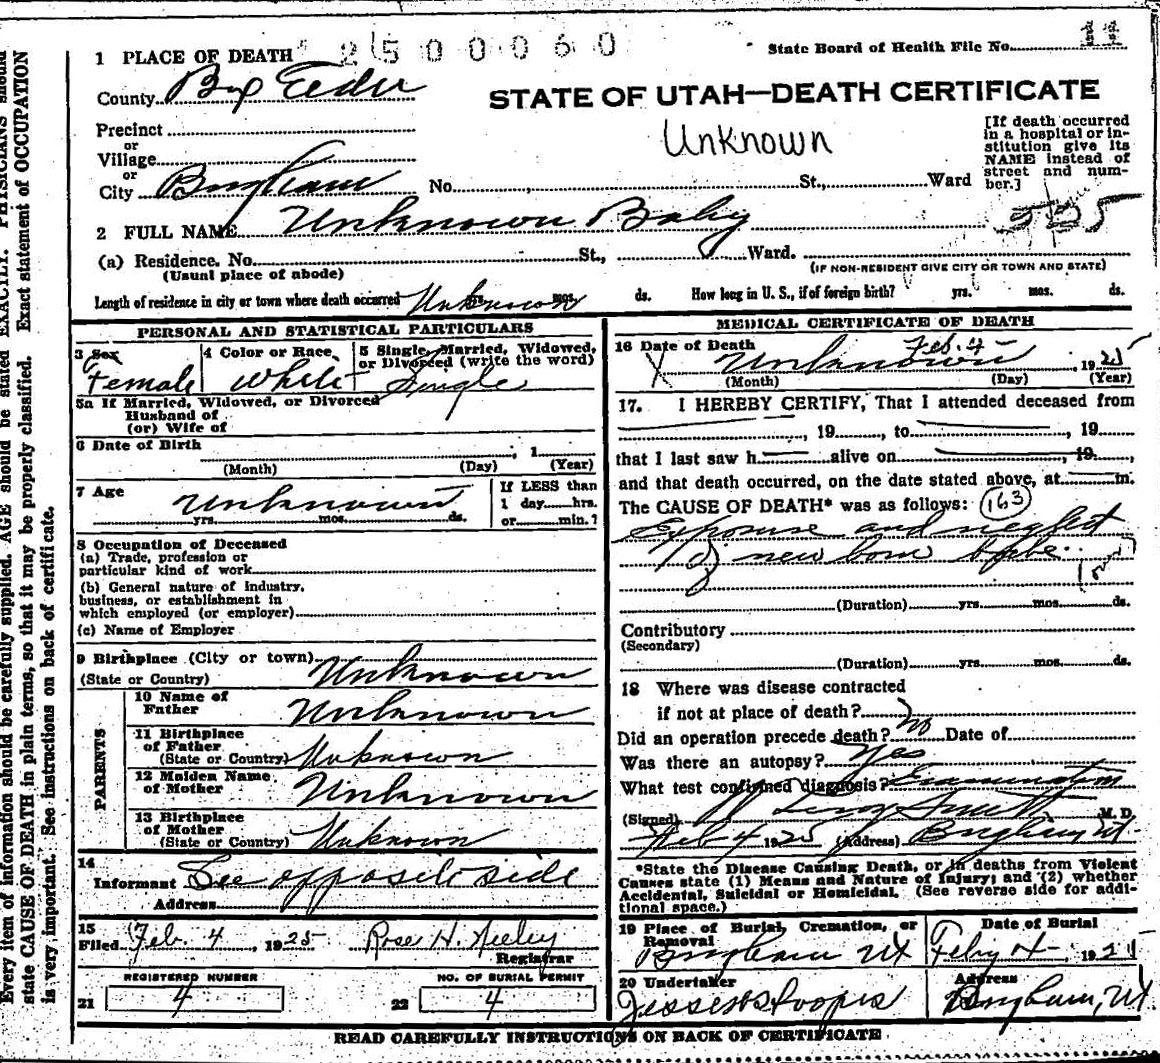 1 PLACE OF DEATH 2500060
State Board of Health File No. 11
County Box Elder
STATE OF UTAH—DEATH CERTIFICATE
Unknown
Precinct
or
Village
or
City Brigham No. St., Ward
[If death occurred
in a hospital or in-
stitution give its
NAME instead of
street and num-
ber.]
2 FULL NAME Unknown Baby
(a) Residence. No. St., Ward.
(Usual place of abode)
(IF NON-RESIDENT GIVE CITY OR TOWN AND STATE)
Length of residence in city or town where death occurred Unknown yrs. mos. ds. How long in U. S., if of foreign birth? yrs. mos. ds.
PERSONAL AND STATISTICAL PARTICULARS
3 Sex 4 Color or Race 5 Single, Married, Widowed,
or Divorced (write the word)
Female White Single
5a If Married, Widowed, or Divorced
Husband of
(or) Wife of
6 Date of Birth , 1
(Month) (Day) (Year)
7 Age Unknown
yrs. mos. ds.
If LESS than
1 day hrs.
or min.?
8 Occupation of Deceased
(a) Trade, profession or
particular kind of work
(b) General nature of industry,
business, or establishment in
which employed (or employer)
(c) Name of Employer
9 Birthplace (City or town)
(State or Country) Unknown
PARENTS
10 Name of
Father Unknown
11 Birthplace
of Father
(State or Country) Unknown
12 Maiden Name
of Mother Unknown
13 Birthplace
of Mother
(State or Country) Unknown
14
Informant See opposite side
Address
15
Filed Feb. 4, 1925 Rose H. Neeley
Registrar
REGISTERED NUMBER NO. OF BURIAL PERMIT
21 4 22 4
MEDICAL CERTIFICATE OF DEATH
16 Date of Death Feb. 4
X Unknown , 1925
(Month) (Day) (Year)
17. I HEREBY CERTIFY, That I attended deceased from
, 19 , to , 19
that I last saw h alive on , 19 ,
and that death occurred, on the date stated above, at m.
The CAUSE OF DEATH* was as follows: 163
Exposure and neglect
of new born babe.
(Duration) yrs. mos. ds.
Contributory
(Secondary)
(Duration) yrs. mos. ds.
18 Where was disease contracted
if not at place of death?
Did an operation precede death? no Date of
Was there an autopsy? Yes
What test confirmed diagnosis? Examination
(Signed) M. D.
Feb 4 1925 (Address) Brigham Ut.
*State the Disease Causing Death, or in deaths from Violent
Causes state (1) Means and Nature of Injury; and (2) whether
Accidental, Suicidal or Homicidal. (See reverse side for addi-
tional space.)
19 Place of Burial, Cremation, or
Removal
Brigham Ut
Date of Burial
Feby 4, 1925
20 Undertaker Address
Brigham, Ut
READ CAREFULLY INSTRUCTIONS ON BACK OF CERTIFICATE
Every item of information should be carefully supplied. AGE should be stated EXACTLY. PHYSICIANS should
state CAUSE OF DEATH in plain terms, so that it may be properly classified. Exact statement of OCCUPATION
is very important. See instructions on back of certificate.